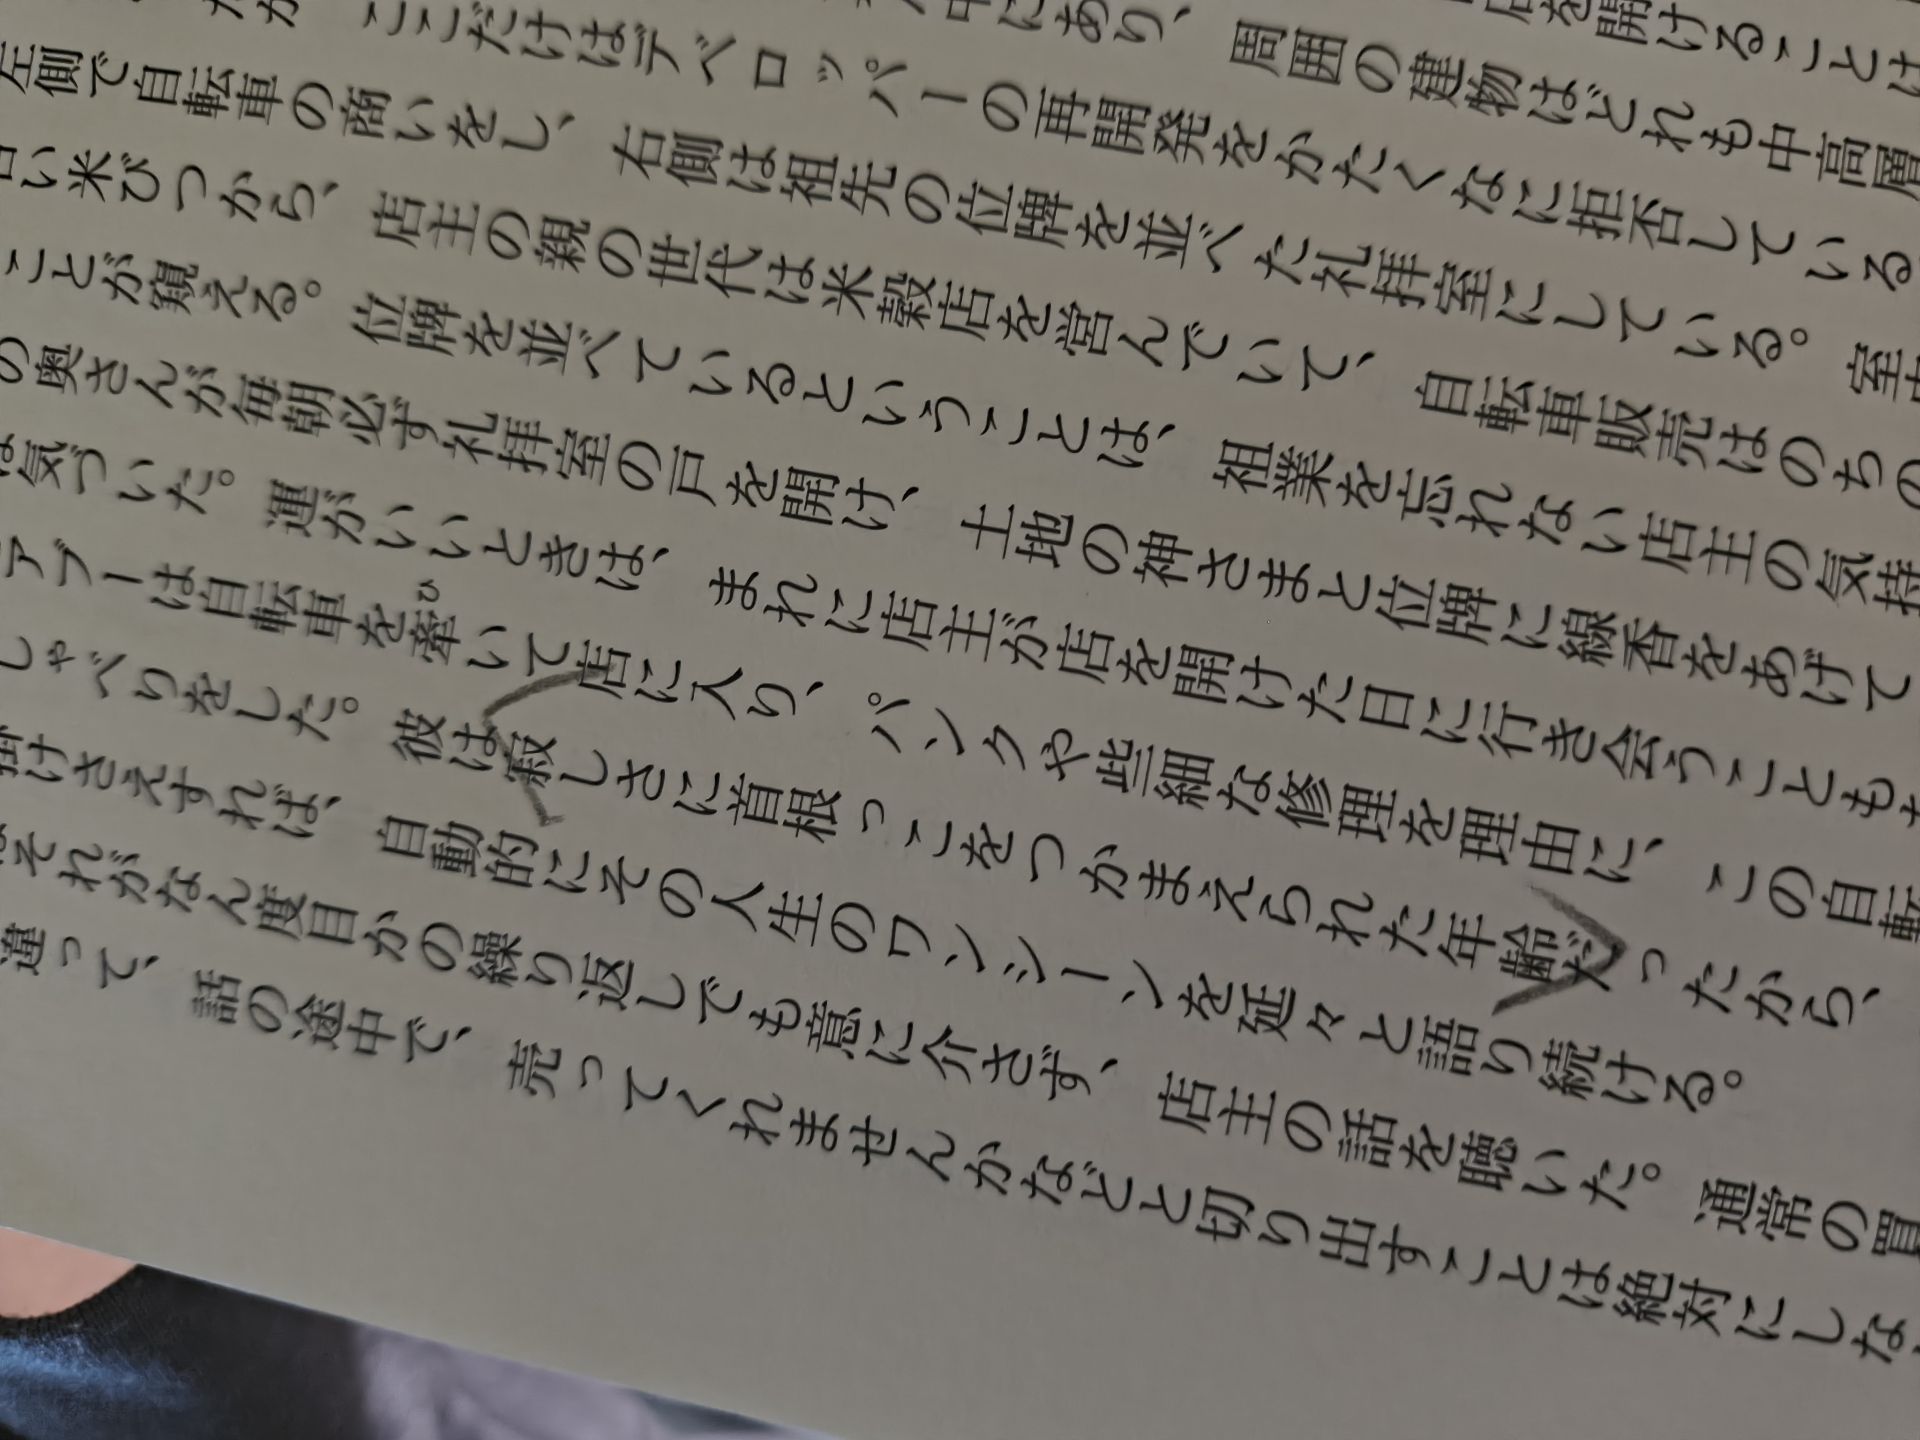 店を開けることは
中にあり、周囲の建物はどれも中高層
ここだけはデベロッパーの再開発をかたくなに拒否している
左側で自転車の商いをし、右側は祖先の位牌を並べた礼拝室にしている。室中
い米びつから、店主の親の世代は米穀店を営んでいて、自転車販売はのちの
ことが窺える。位牌を並べているということは、祖業を忘れない店主の気持
の奥さんが毎朝必ず礼拝室の戸を開け、土地の神さまと位牌に線香をあげて
は気づいた。運がいいときは、まれに店主が店を開けた日に行き会うことも
アブーは自転車を牽いて店に入り、パンクや些細な修理を理由に、この自転
しゃべりをした。彼は寂しさに首根っこをつかまえられた年齢だったから、
掛けさえすれば、自動的にその人生のワンシーンを延々と語り続ける。
はそれがなん度目かの繰り返しでも意に介さず、店主の話を聴いた。通常の買
違って、話の途中で、売ってくれませんかなどと切り出すことは絶対にしな